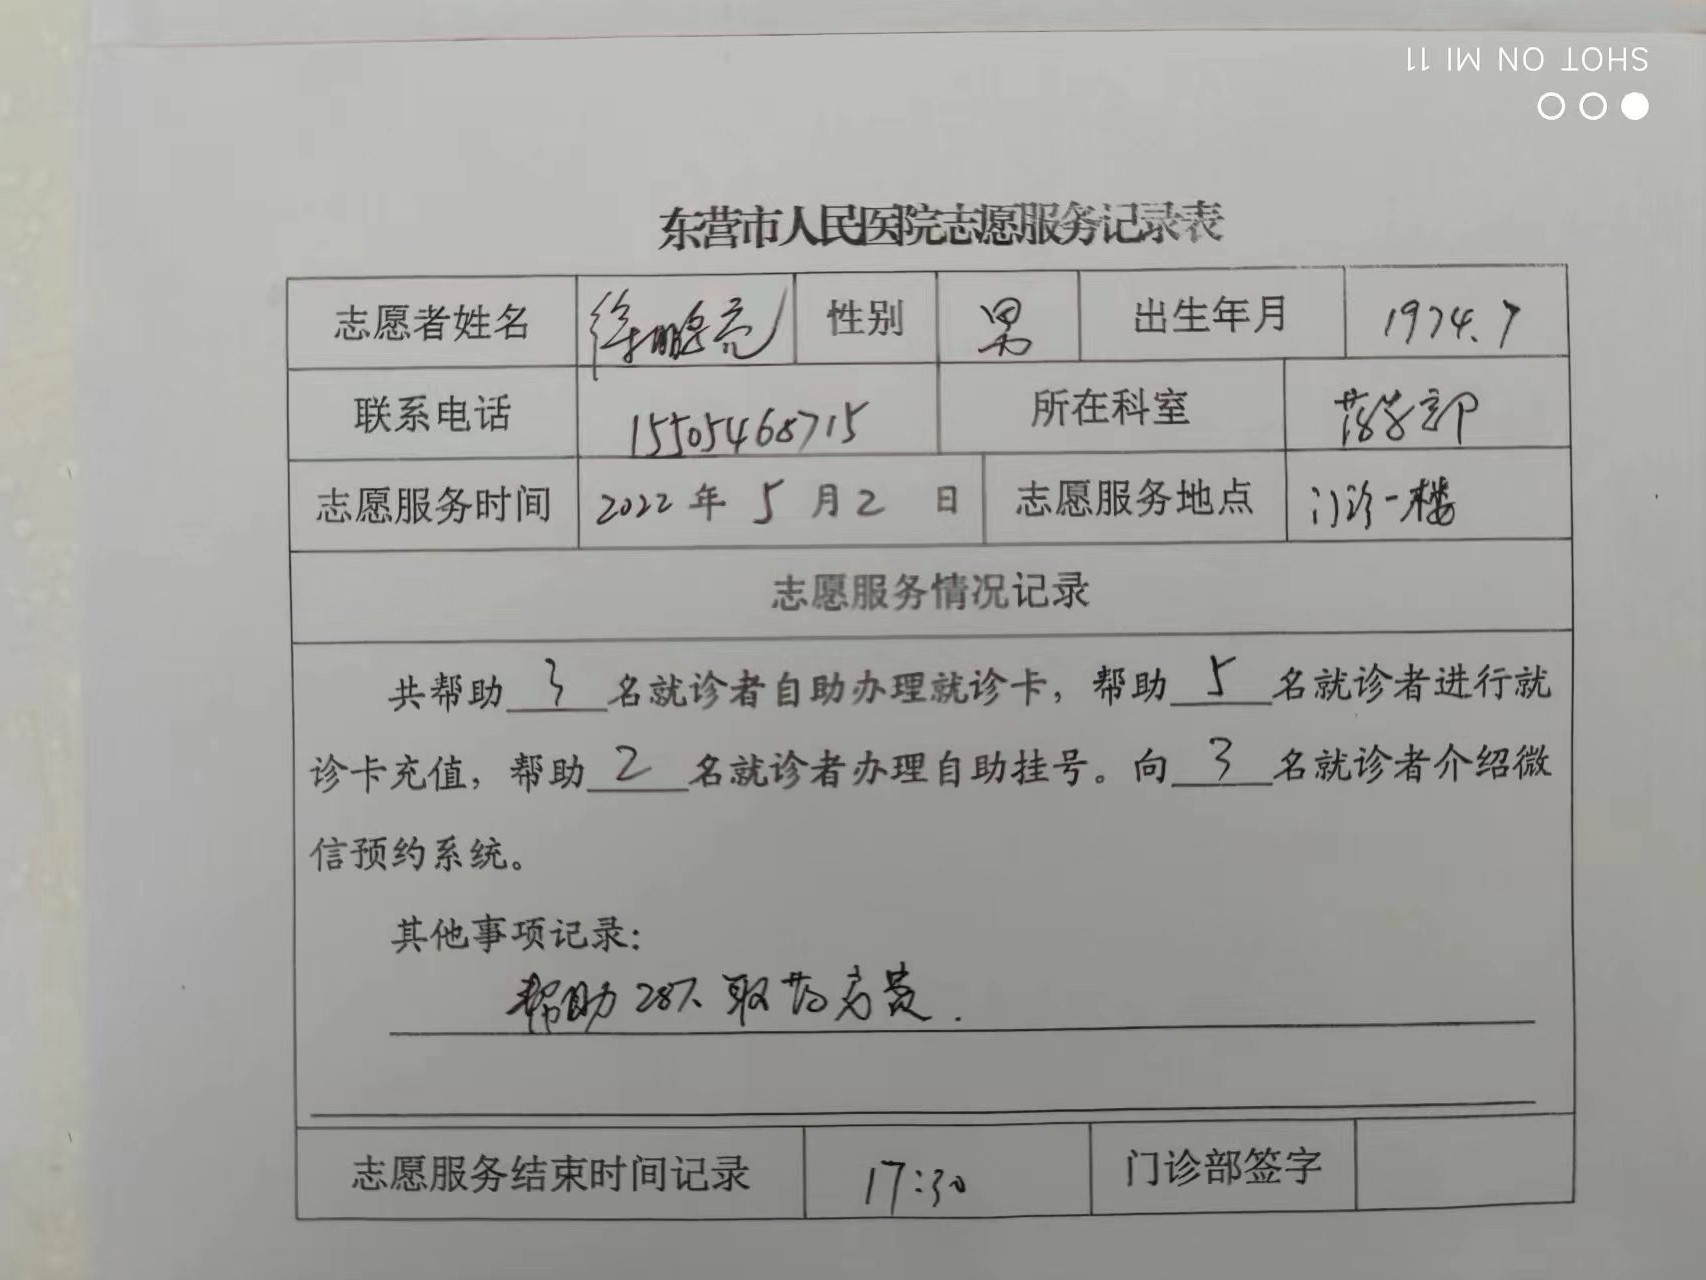 SHOT ON MI 11
东营市人民医院志愿服务记录表
志愿者姓名 徐鹏亮 性别 男 出生年月 1974.7
联系电话 15505468715 所在科室 药学部
志愿服务时间 2022年5月2日 志愿服务地点 门诊一楼
志愿服务情况记录
共帮助3名就诊者自助办理就诊卡，帮助5名就诊者进行就
诊卡充值，帮助2名就诊者办理自助挂号。向3名就诊者介绍微
信预约系统。
其他事项记录：
帮助28人取药
志愿服务结束时间记录 17:30 门诊部签字